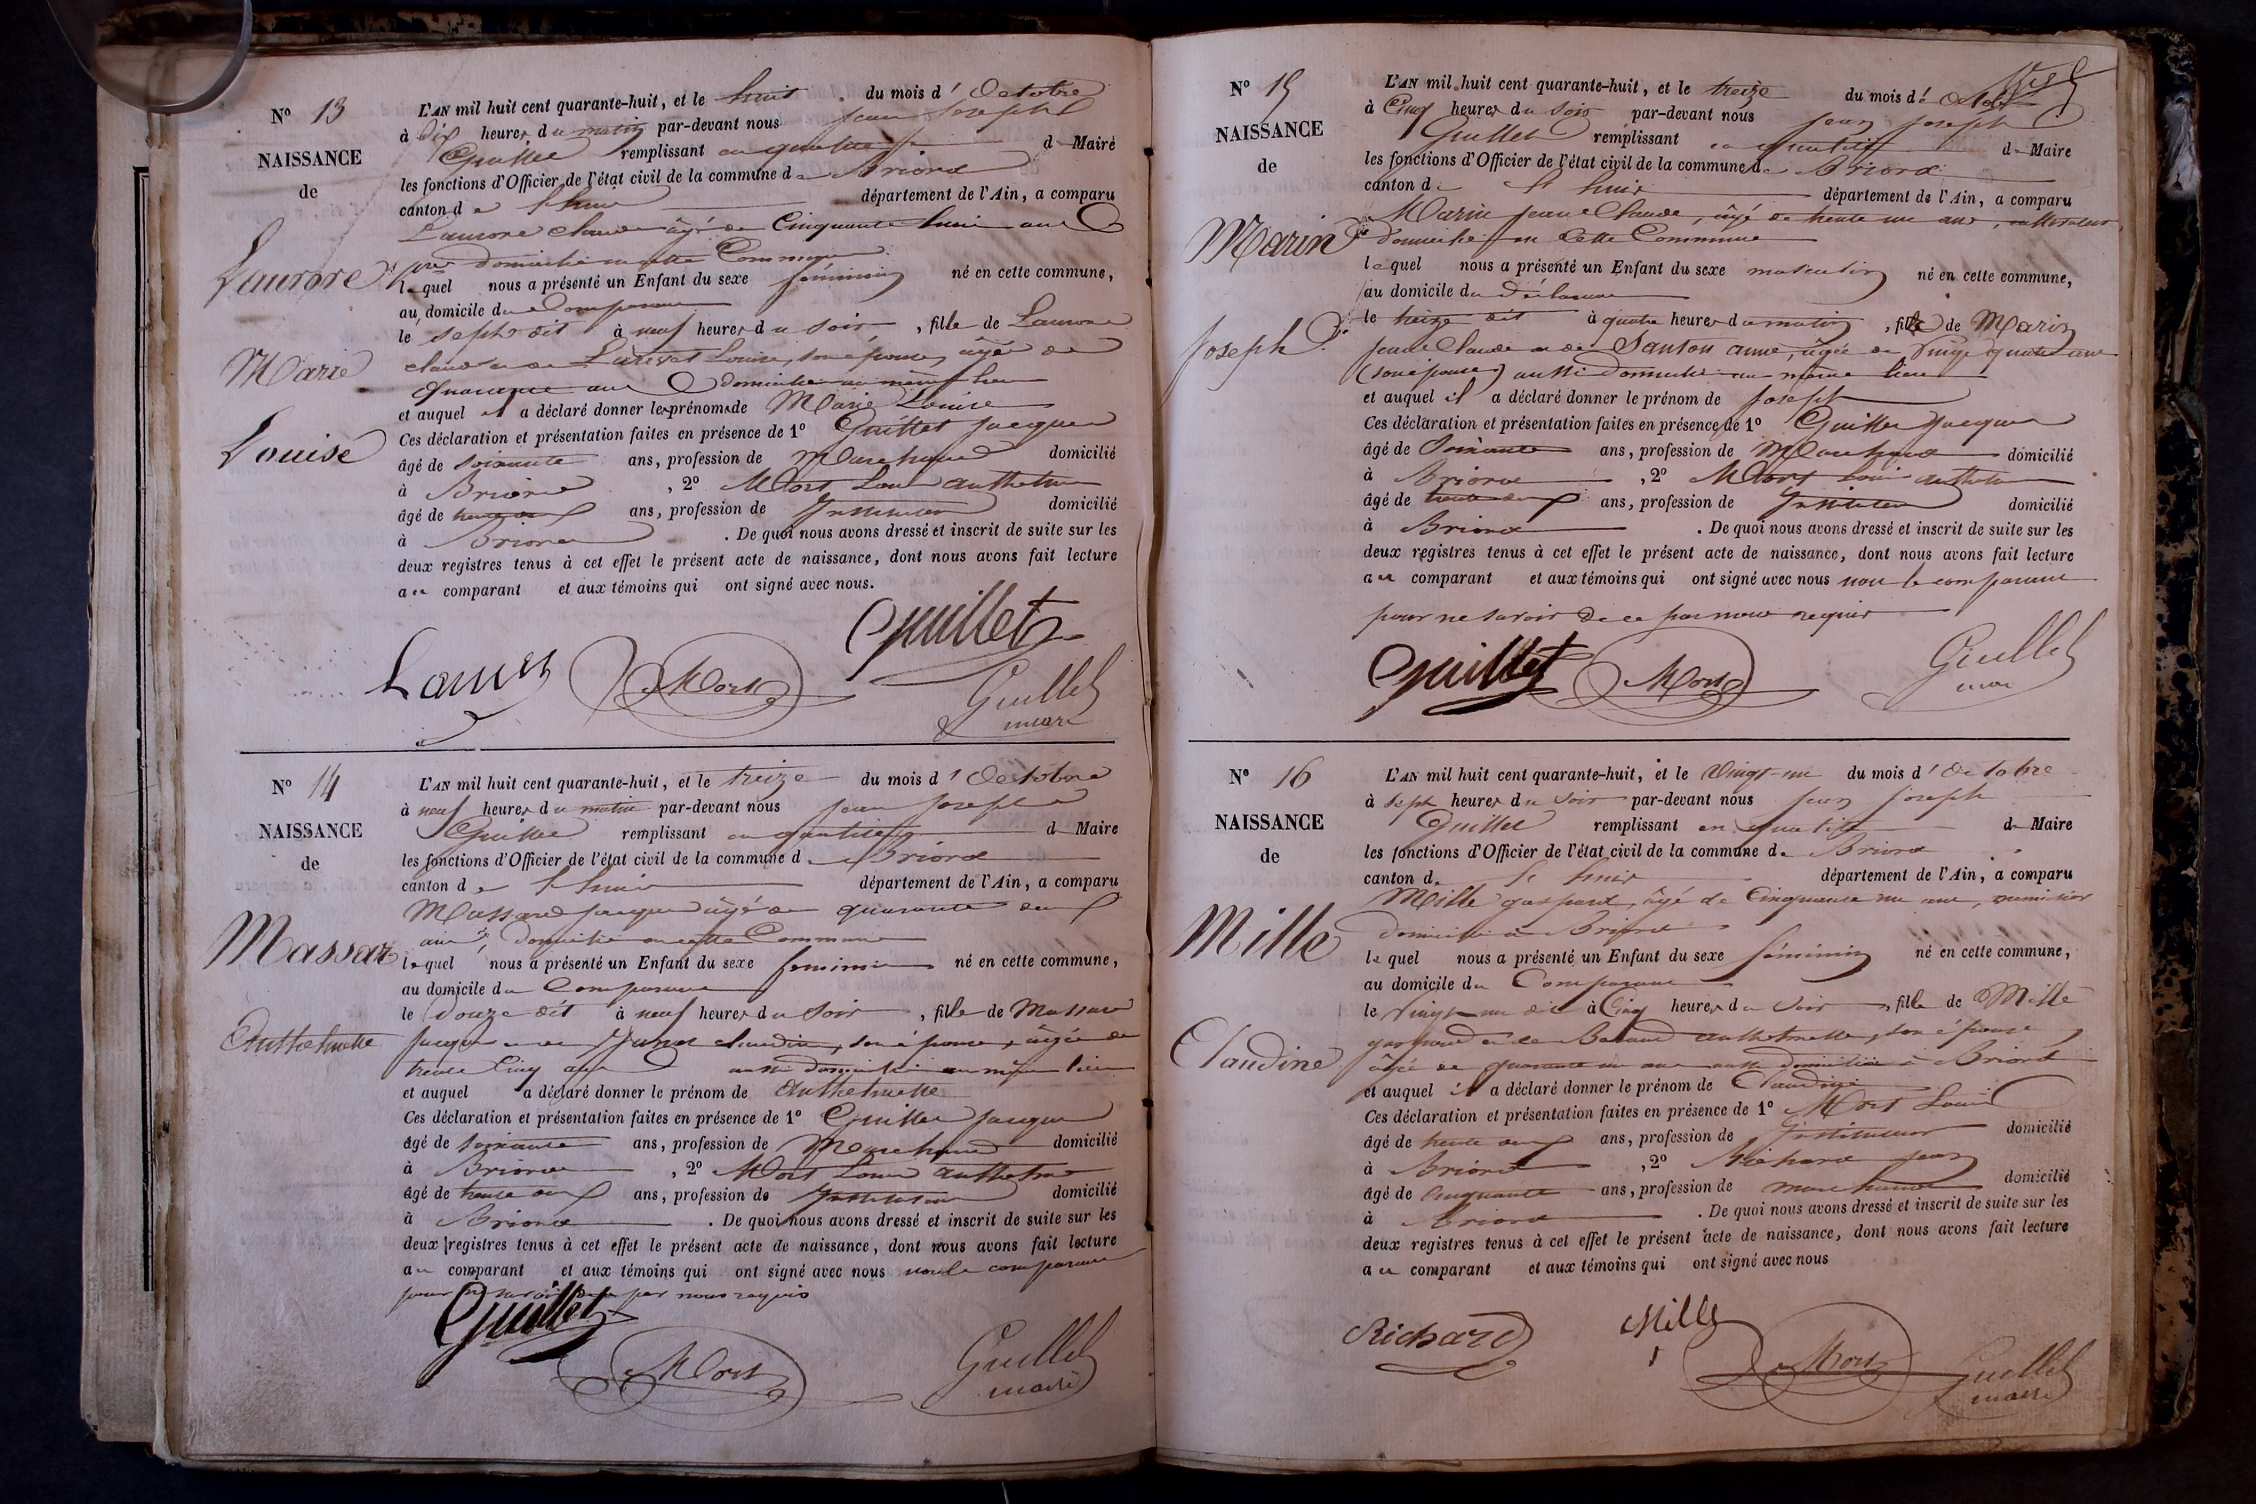 N° 13
NAISSANCE
de
Laurore
Marie
Louise
L'AN mil huit cent quarante-huit, et le huit du mois d'Octobre
à dix heures du matin par-devant nous jean joseph
Guillet remplissant en qualité de Maire
les fonctions d'Officier de l'état civil de la commune de Briord
canton de Lhuis département de l'Ain, a comparu
Laurore claude âgé de Cinquante huit ans
domicilié en cette Commune
lequel nous a présenté un Enfant du sexe féminin né en cette commune,
au domicile du Comparant
le sept dit à neuf heures du soir, fille de Laurore
claude et de Louise, son épouse, âgée de
quarante ans domiciliée au même lieu
et auquel il a déclaré donner les prénoms de Marie Louise
Ces déclaration et présentation faites en présence de 1° Guillet jacques
âgé de soixante ans, profession de Marchand domicilié
à Briord, 2° Mort Louis anthelme
âgé de trente deux ans, profession de Instituteur domicilié
à Briord. De quoi nous avons dressé et inscrit de suite sur les
deux registres tenus à cet effet le présent acte de naissance, dont nous avons fait lecture
au comparant et aux témoins qui ont signé avec nous.
Guillet
Mort
Guillet
maire
N° 14
NAISSANCE
de
Massar
Anthelmette
L'AN mil huit cent quarante-huit, et le treize du mois d'Octobre
à neuf heures du matin par-devant nous jean joseph
Guillet remplissant en qualité de Maire
les fonctions d'Officier de l'état civil de la commune de Briord
canton de Lhuis département de l'Ain, a comparu
Massard jacques âgé de quarante deux
ans, domicilié en cette Commune
lequel nous a présenté un Enfant du sexe feminin né en cette commune,
au domicile du Comparant
le douze dit à neuf heures du soir, fille de Massard
jacques et de claudine, son épouse, âgée de
trente cinq ans aussi domiciliée au même lieu
et auquel a déclaré donner le prénom de Anthelmette
Ces déclaration et présentation faites en présence de 1° Guillet jacques
âgé de soixante ans, profession de Marchand domicilié
à Briord, 2° Mort Louis anthelme
âgé de trente deux ans, profession de Instituteur domicilié
à Briord. De quoi nous avons dressé et inscrit de suite sur les
deux registres tenus à cet effet le présent acte de naissance, dont nous avons fait lecture
au comparant et aux témoins qui ont signé avec nous non le comparant
pour ne savoir de ce par nous requis
Guillet
Mort
Guillet
maire
N° 15
NAISSANCE
de
Marin
Joseph
L'AN mil huit cent quarante-huit, et le treize du mois d'
à Cinq heures du soir par-devant nous jean joseph
Guillet remplissant en qualité de Maire
les fonctions d'Officier de l'état civil de la commune de Briord
canton de Lhuis département de l'Ain, a comparu
Marin jean Claude, âgé de trente un ans, cultivateur,
domicilié en cette Commune
lequel nous a présenté un Enfant du sexe masculin né en cette commune,
au domicile du Déclarant
le treize dit à quatre heures du matin, fils de Marin
jean Claude et de Santon anne, âgée de vingt quatre ans
(son épouse) aussi domiciliée au même lieu
et auquel il a déclaré donner le prénom de Joseph
Ces déclaration et présentation faites en présence de 1° Guillet jacques
âgé de Soixante ans, profession de Marchand domicilié
à Briord, 2° Mort Louis anthelme
âgé de trente deux ans, profession de Instituteur domicilié
à Briord. De quoi nous avons dressé et inscrit de suite sur les
deux registres tenus à cet effet le présent acte de naissance, dont nous avons fait lecture
au comparant et aux témoins qui ont signé avec nous non le comparant
pour ne savoir de ce par nous requis
Guillet
Mort
Guillet
maire
N° 16
NAISSANCE
de
Mille
Claudine
L'AN mil huit cent quarante-huit, et le vingt-un du mois d'Octobre
à sept heures du soir par-devant nous jean joseph
Guillet remplissant en qualité de Maire
les fonctions d'Officier de l'état civil de la commune de Briord
canton de Lhuis département de l'Ain, a comparu
Mille gaspard, âgé de Cinquante un ans, menuisier
domicilié à Briord
lequel nous a présenté un Enfant du sexe féminin né en cette commune,
au domicile du Comparant
le vingt-un dit à Cinq heures du soir, fille de Mille
gaspard et de anthelmette, son épouse
âgée de quarante un ans aussi domiciliée à Briord
et auquel il a déclaré donner le prénom de Claudine
Ces déclaration et présentation faites en présence de 1° Mort Louis
âgé de trente deux ans, profession de Instituteur domicilié
à Briord, 2° Richard jean
âgé de cinquante ans, profession de marchand domicilié
à Briord. De quoi nous avons dressé et inscrit de suite sur les
deux registres tenus à cet effet le présent acte de naissance, dont nous avons fait lecture
au comparant et aux témoins qui ont signé avec nous
Richard
Mille
Mort
Guillet
maire